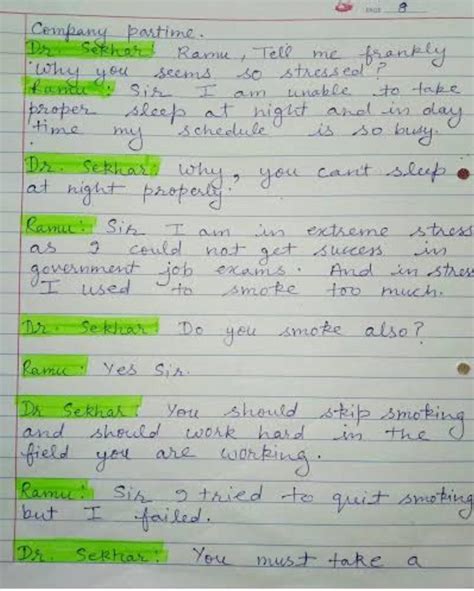 PAGE 8
Company partime.
Dr. Sekhar: Ramu, Tell me frankly
why you seems so stressed?
Ramu: Sir I am unable to take
proper sleep at night and in day
time my schedule is so busy.
Dr. Sekhar: Why, you can't sleep
at night properly.
Ramu: Sir I am in extreme stress
as I could not get success in
government job exams. And in stress
I used to smoke too much.
Dr. Sekhar: Do you smoke also?
Ramu: Yes Sir.
Dr Sekhar: You should skip smoking
and should work hard in the
field you are working.
Ramu: Sir I tried to quit smoking
but I failed.
Dr. Sekhar: You must take a